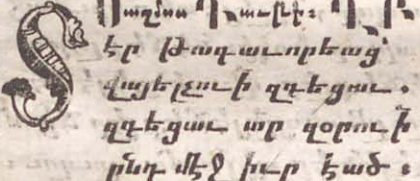 Սաղմոս Դաւթի։
Տէր թագաւորեաց՝
վայելչուի զգեցաւ .
զգեցաւ տր զօրուի
ընդ մէջ իւր էած ։